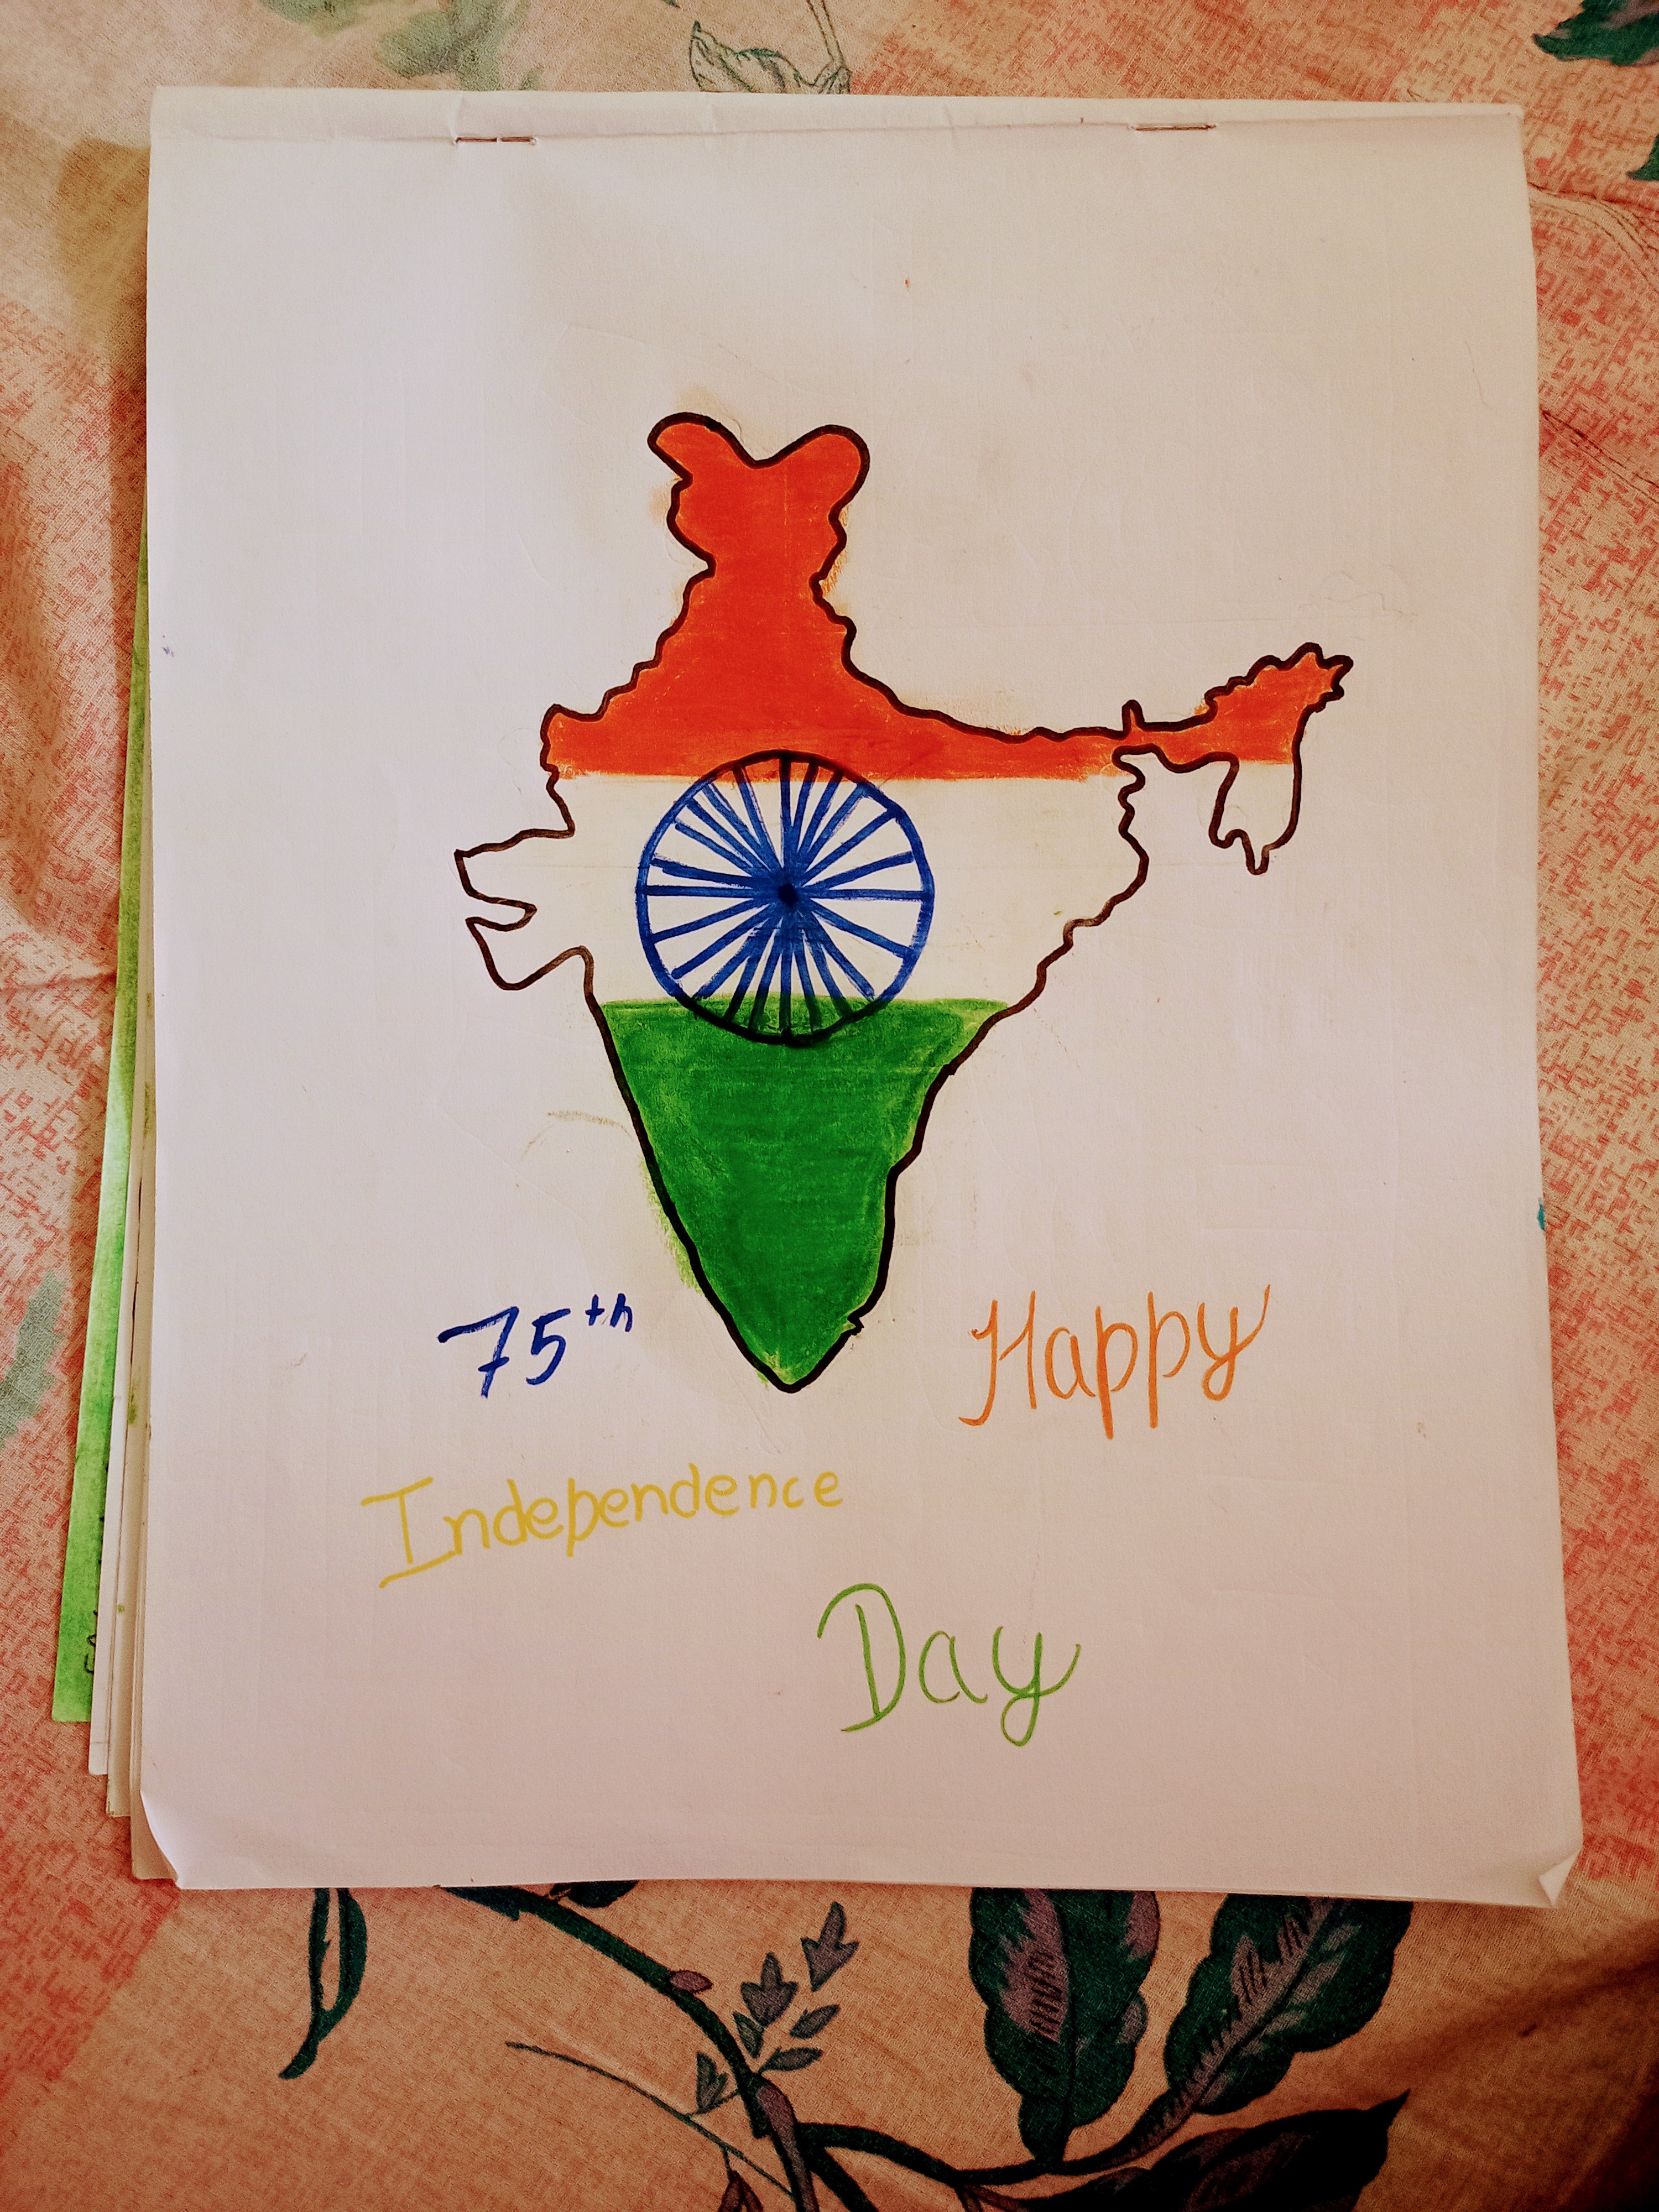 75th Happy
Independence
Day